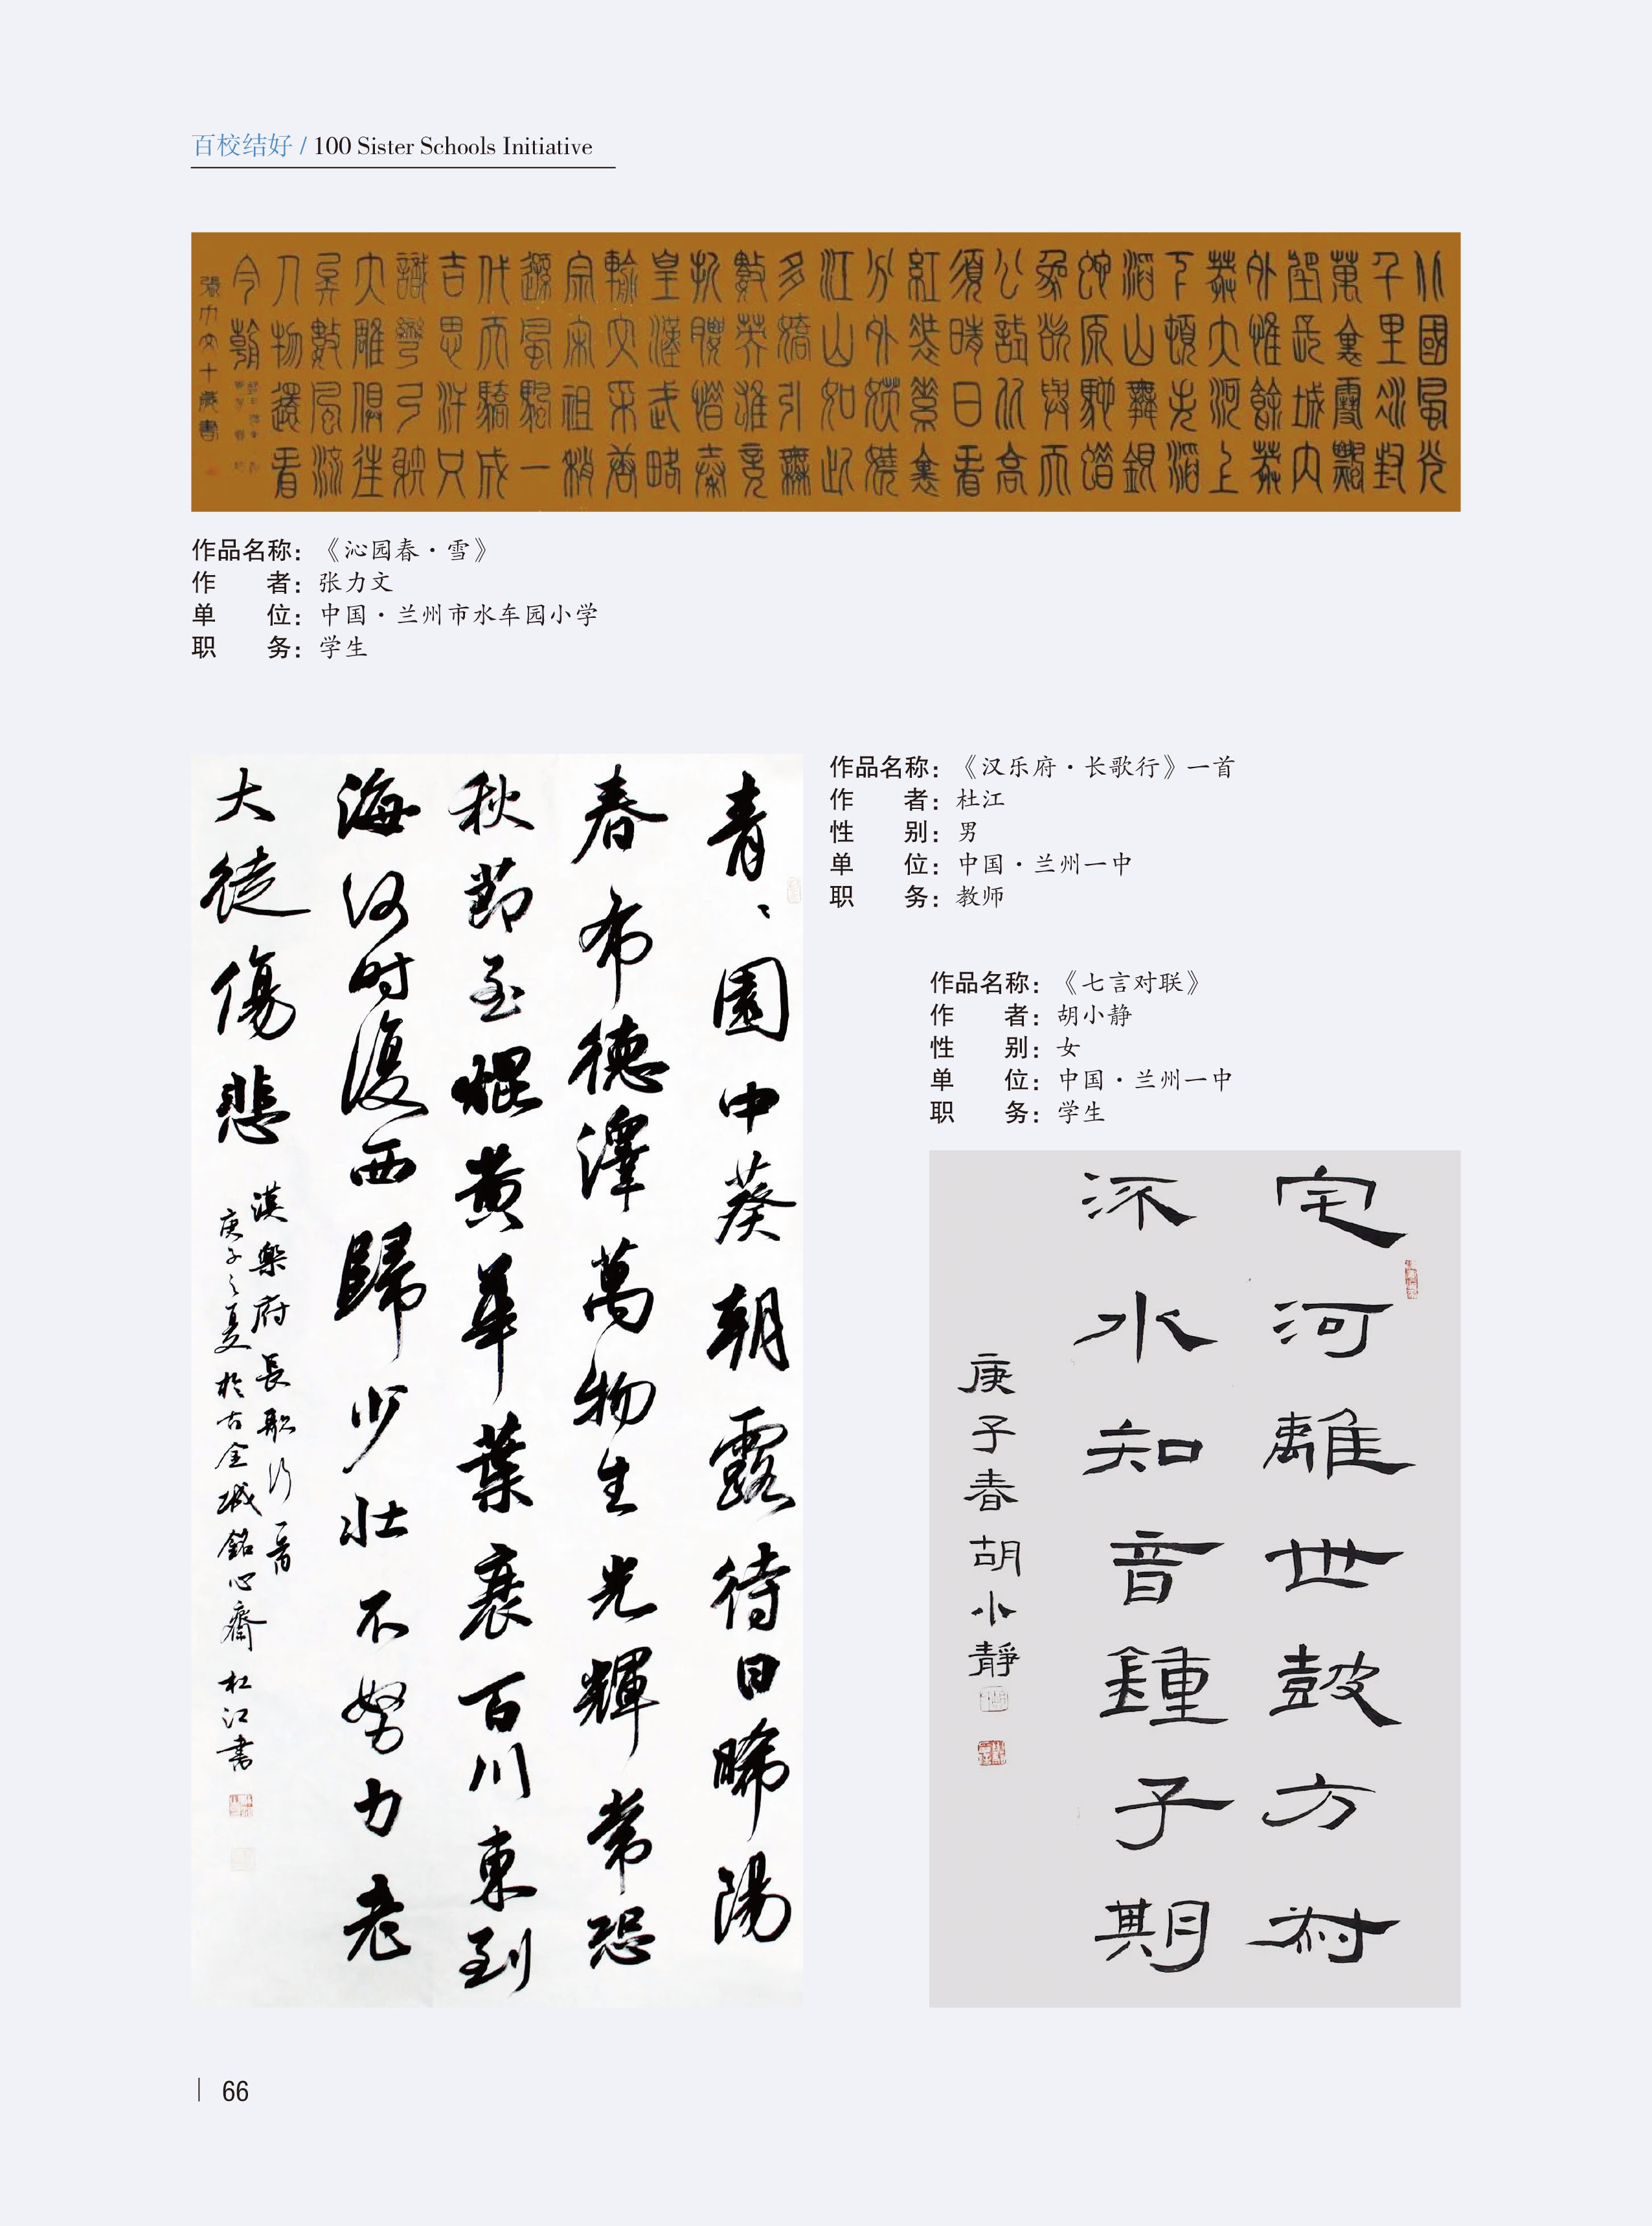 百校结好 / 100 Sister Schools Initiative
北國風光
千里冰封
萬裏雪飄
望長城内
外惟餘莽
莽大河上
下頓失滔
滔山舞銀
蛇原馳蜡
象欲與天
公試比高
須晴日看
紅裝素裹
分外妖嬈
江山如此
多嬌引無
數英雄競
折腰惜秦
皇漢武略
輸文采唐
宗宋祖稍
遜風騷一
代天驕成
吉思汗只
識彎弓射
大雕俱往
矣數風流
人物還看
今朝
張力文十歲書
作品名称：《沁园春·雪》
作　　者：张力文
单　　位：中国·兰州市水车园小学
职　　务：学生
作品名称：《汉乐府·长歌行》一首
作　　者：杜江
性　　别：男
单　　位：中国·兰州一中
职　　务：教师
青、園中葵朝露待日晞陽
春布德澤萬物生光輝常恐
秋節至焜黃華葉衰百川東到
海何时復西歸少壯不努力老
大徒傷悲
漢樂府長歌行一首
庚子之夏於古金城銘心齋杜江書
作品名称：《七言对联》
作　　者：胡小静
性　　别：女
单　　位：中国·兰州一中
职　　务：学生
宅河離世鼓方
水知音鍾子期
庚子春胡小靜
66